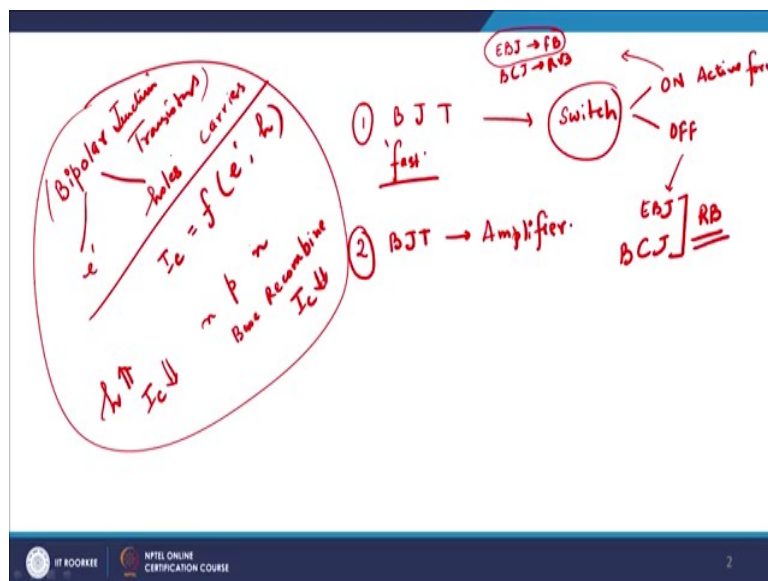 (Bipolar Junction
Transistors)
e⁻ holes carriers
I_C = f(e⁻, h)
n p n
Base Recombine
I_C ↓↓
h ⇈
I_C ↓↓
EBJ → FB
BCJ → RB
① BJT → Switch
ON Active for
OFF
'fast.
EBJ
BCJ ] RB
② BJT → Amplifier.
IIT ROORKEE
NPTEL ONLINE
CERTIFICATION COURSE
2